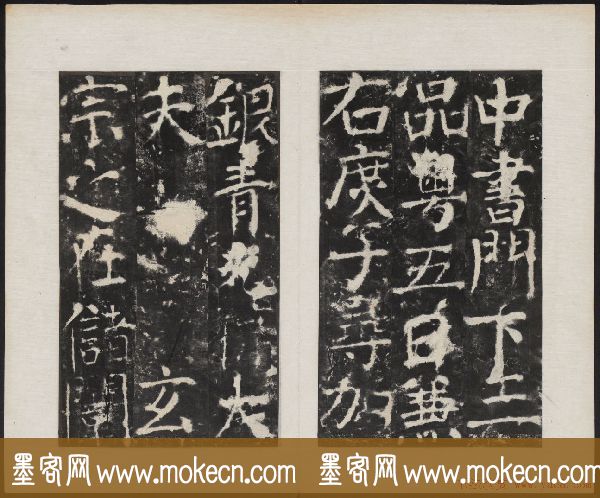 中書門下三
品粤五日兼
右庶子尋加
銀青光祿大
夫 玄
宗之在儲闈
墨客网 www.mokecn.com
墨客网 www.mokecn.com